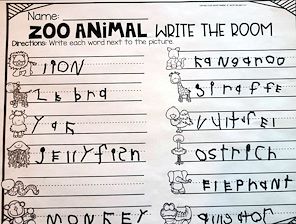 Name:
ZOO ANIMAL WRITE THE ROOM
Directions: Write each word next to the picture.
lion
kangaroo
Zebra
giraffe
Yak
JEllyfish
ostrich
ElEphant
monkey